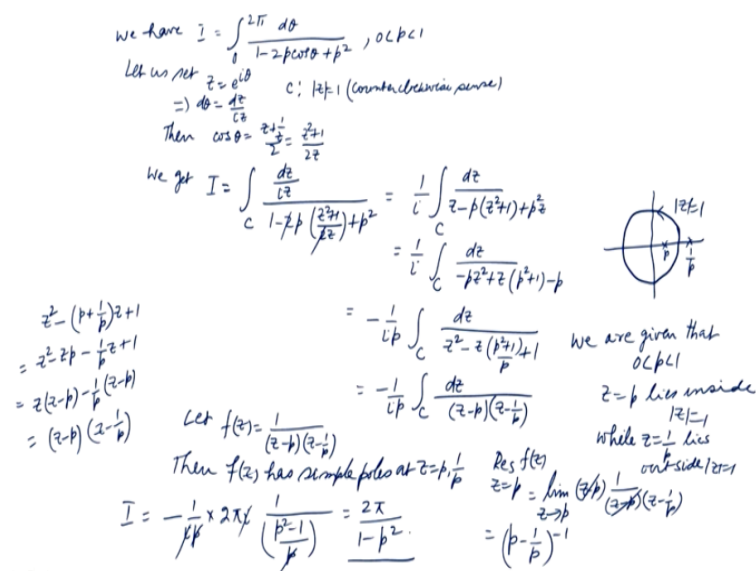 we have I = ∫₀^{2π} dθ / (1-2pcosθ+p²) , 0<p<1
Let us set z = e^{iθ}
C: |z|=1 (counterclockwise sense)
⇒ dθ = dz/iz
Then cosθ = (z+1/z)/2 = (z²+1)/2z
We get I = ∫_C (dz/iz) / (1-2p((z²+1)/2z)+p²) = 1/i ∫_C dz / (z-p(z²+1)+p²z)
= 1/i ∫_C dz / (-pz²+z(p²+1)-p)
= -1/ip ∫_C dz / (z²-z((p²+1)/p)+1)
= -1/ip ∫_C dz / ((z-p)(z-1/p))
|z|=1
p
1/p
z²-(p+1/p)z+1
= z²-zp-1/p z+1
= z(z-p)-1/p(z-p)
= (z-p)(z-1/p)
we are given that
0<p<1
z=p lies inside
|z|=1
while z=1/p lies
outside |z|=1
Let f(z) = 1/((z-p)(z-1/p))
Then f(z) has simple poles at z=p, 1/p
Res f(z)
z=p = lim_{z→p} (z-p) 1/((z-p)(z-1/p))
= (p-1/p)⁻¹
I = -1/ip × 2πi 1/((p²-1)/p) = 2π/(1-p²).